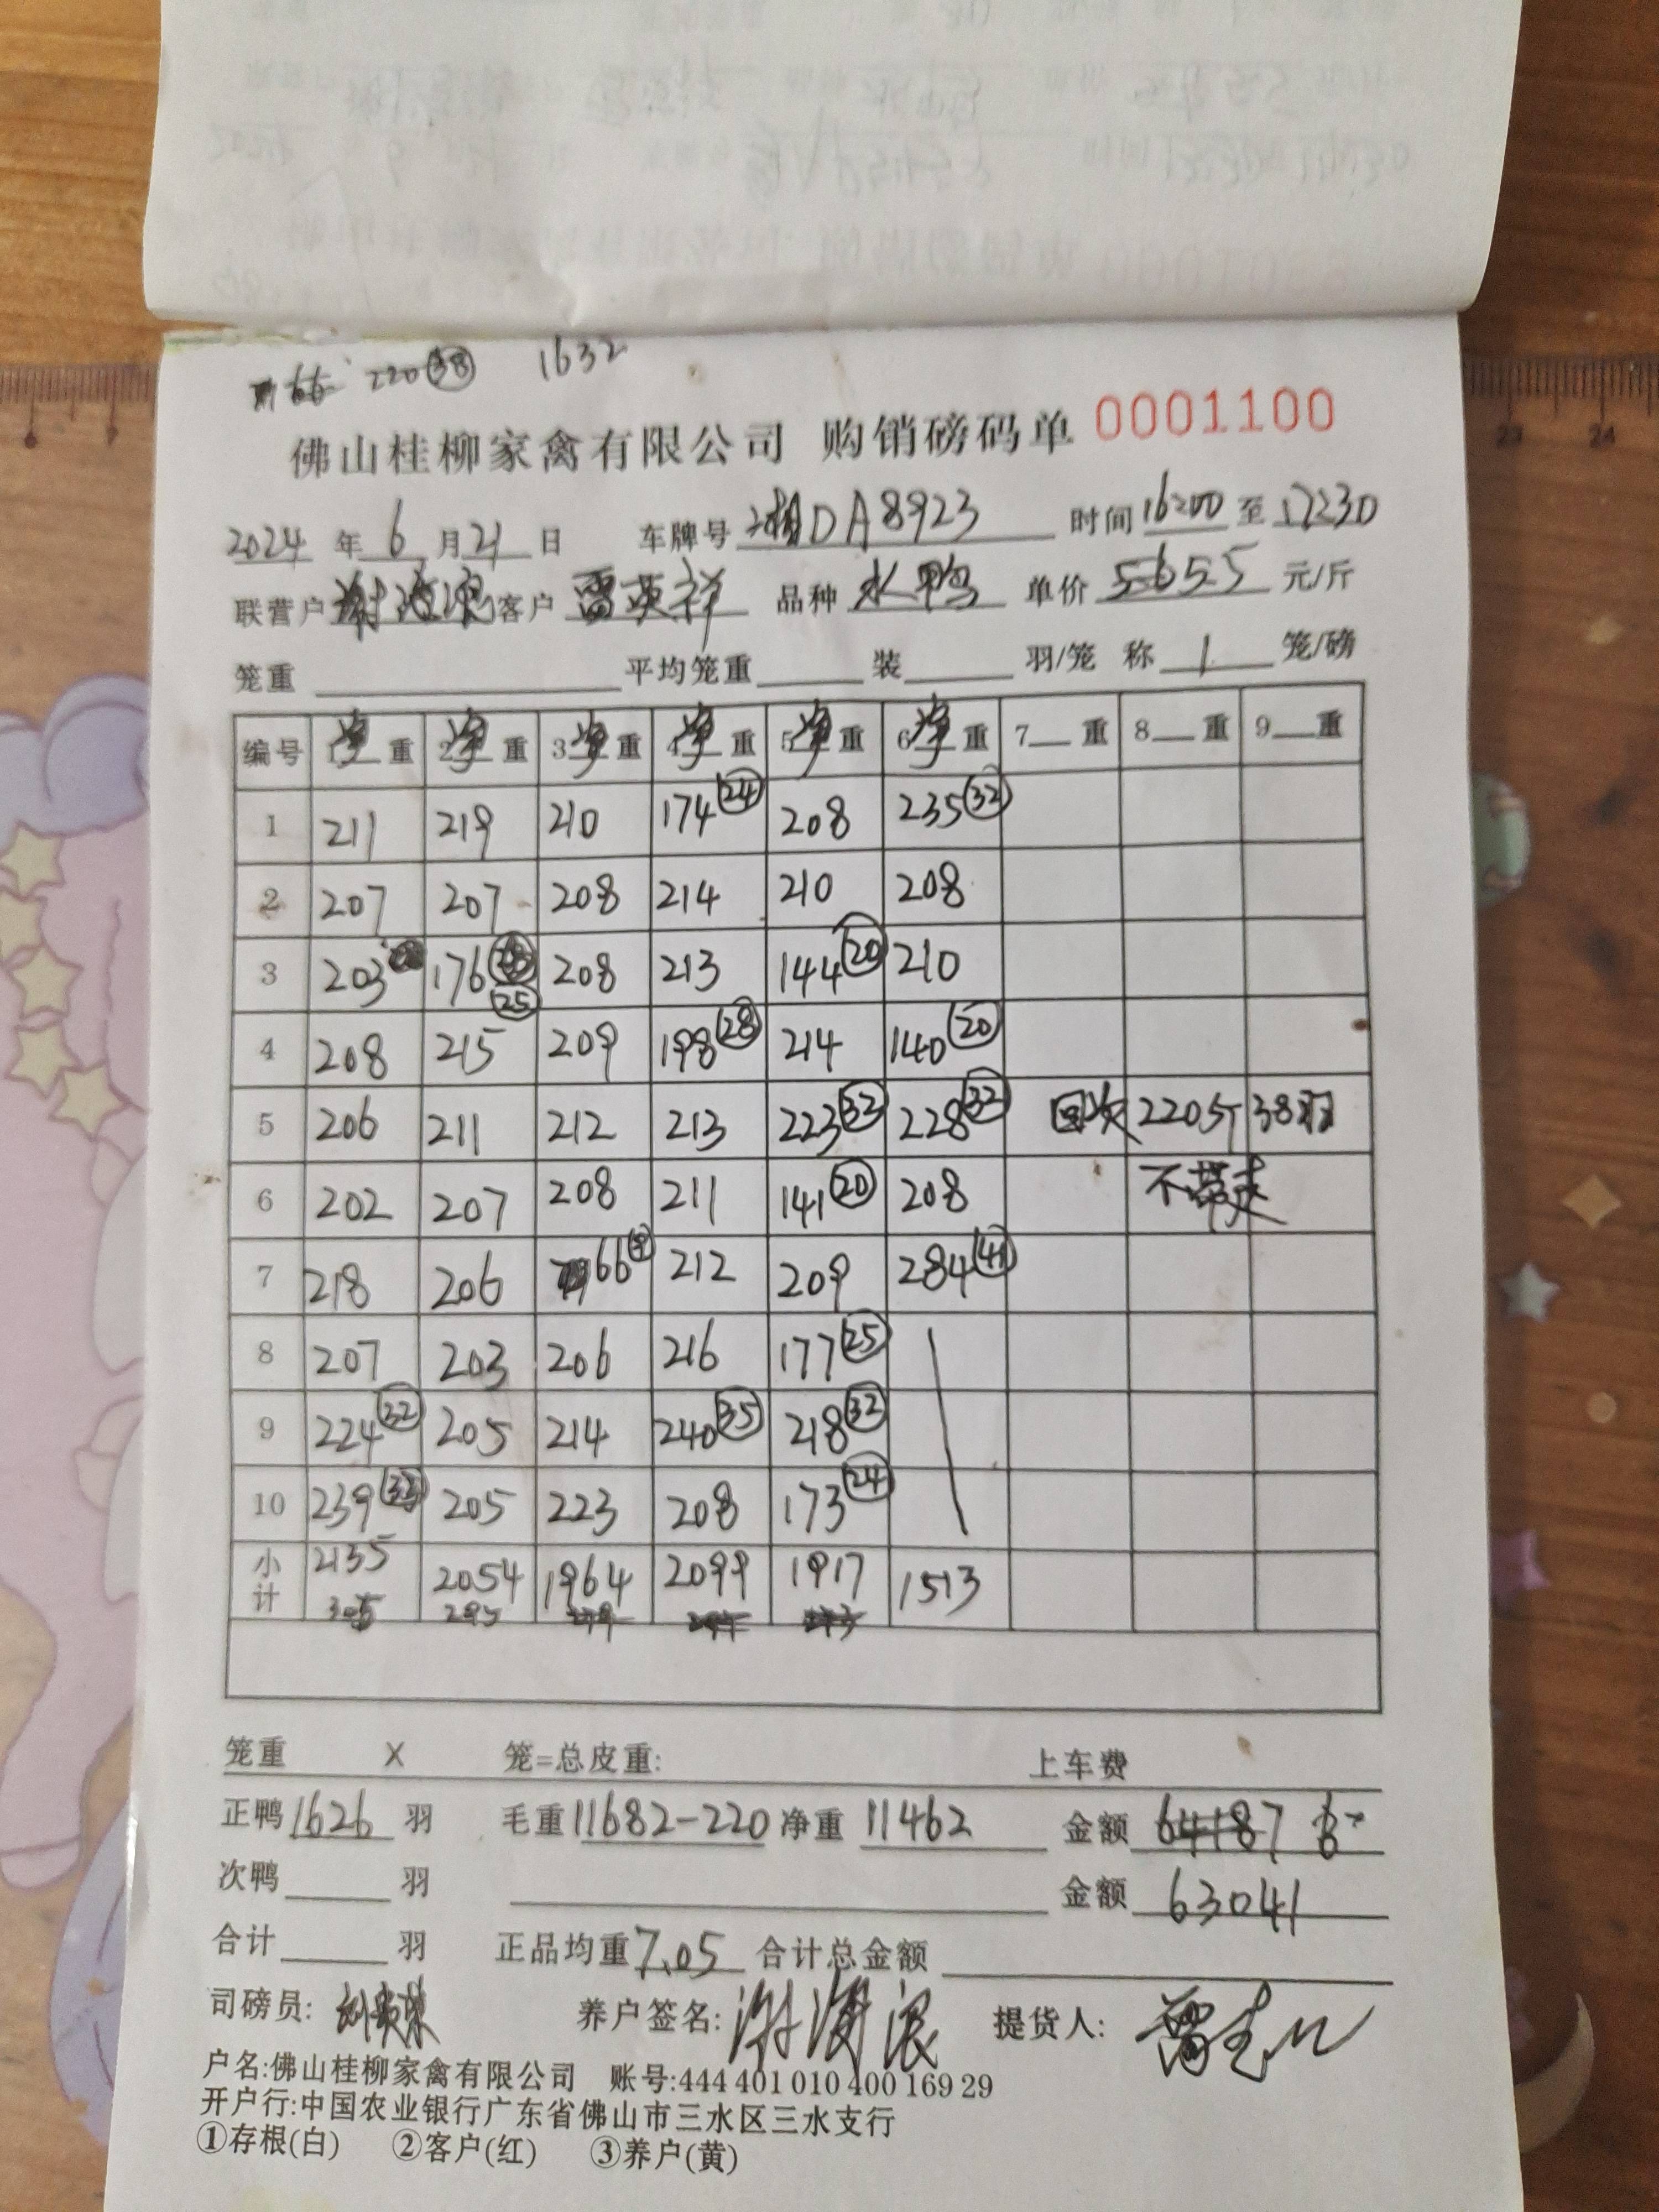 66 220 38 1632
佛山桂柳家禽有限公司 购销磅码单 0001100
2024 年 6 月 21 日 车牌号 湘DA8923 时间 16:00 至 17:30
联营户 客户 雷英祥 品种 水鸭 单价 5.65 5.5 元/斤
笼重 平均笼重 装 羽/笼 称 1 笼/磅
编号 1净重 2净重 3净重 4净重 5净重 6净重 7 重 8 重 9 重
1 211 219 210 174 24 208 235 32
2 207 207 208 214 210 208
3 203 176 25 208 213 144 20 210
4 208 215 209 198 28 214 140 20
5 206 211 212 213 223 32 228 32 回次 220斤 38羽
6 202 207 208 211 141 20 208 不带走
7 218 206 66 9 212 209 284 41
8 207 203 206 216 177 25
9 224 32 205 214 240 35 218 32
10 239 33 205 223 208 173 24
小计 2135 2054 1964 2099 1917 1513
305 295
笼重 X 笼=总皮重: 上车费
正鸭 1626 羽 毛重 11682-220 净重 11462 金额 64187
次鸭 羽 金额 63041
合计 羽 正品均重 7.05 合计总金额
司磅员: 养户签名: 提货人:
户名:佛山桂柳家禽有限公司 账号:444 401 010 400 169 29
开户行:中国农业银行广东省佛山市三水区三水支行
①存根(白) ②客户(红) ③养户(黄)